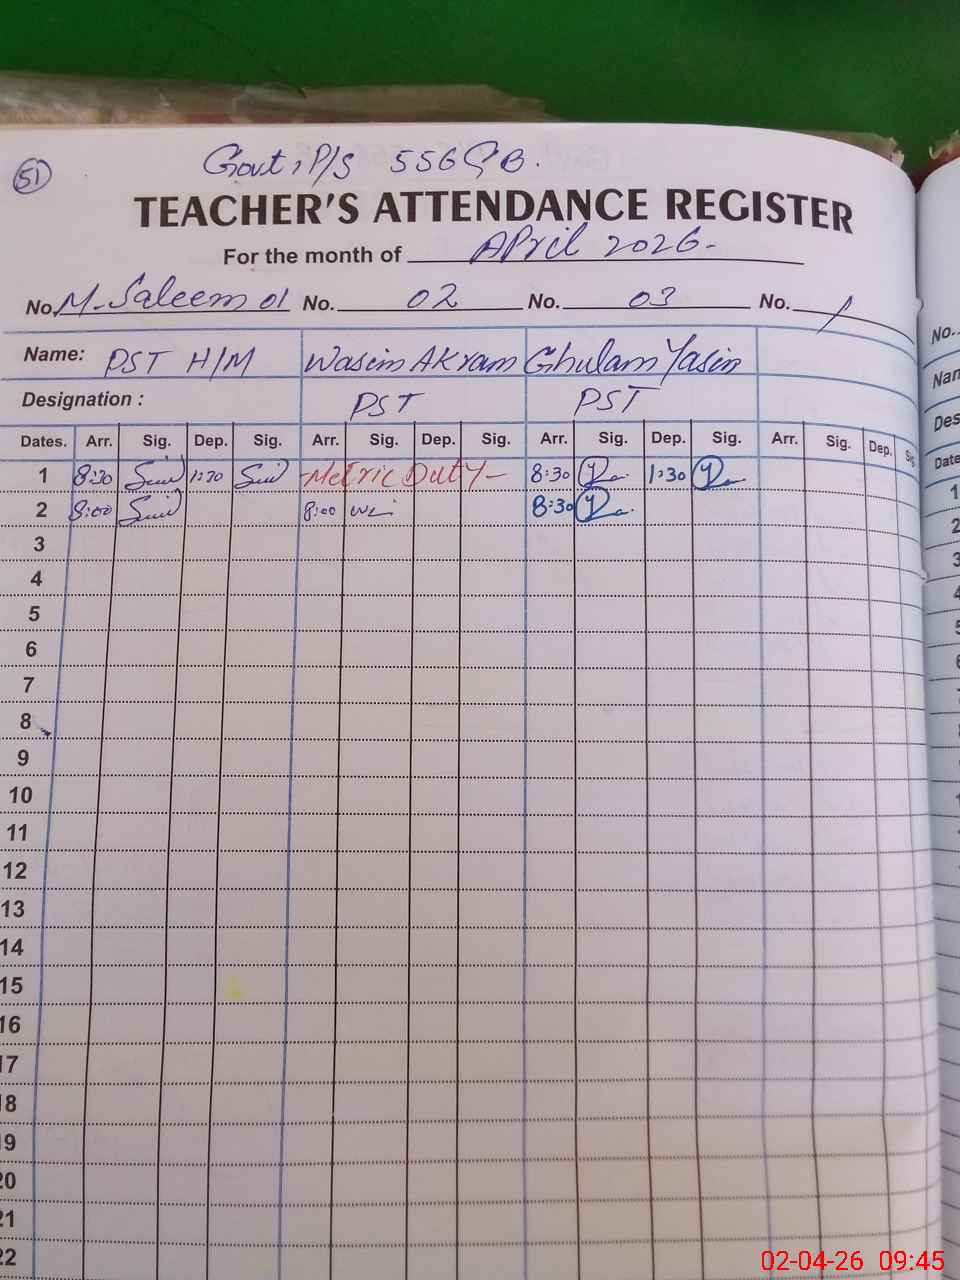 51
Govt; P/S 556 GB.
TEACHER'S ATTENDANCE REGISTER
For the month of April 2026-
No. M-Saleem 01 No. 02 No. 03 No.
Name: PST H/M Wasim Akram Ghulam Yasin
Designation : PST PST
Dates. Arr. Sig. Dep. Sig. Arr. Sig. Dep. Sig. Arr. Sig. Dep. Sig. Arr. Sig. Dep. Sig
1 8:30 1:30 -Metric Duty- 8:30 1:30
2 8:00 8:00 8:30
3
4
5
6
7
8
9
10
11
12
13
14
15
16
17
18
19
20
21
22
No..
Nam
Des
Date
1
2
3
4
5
6
02-04-26 09:45